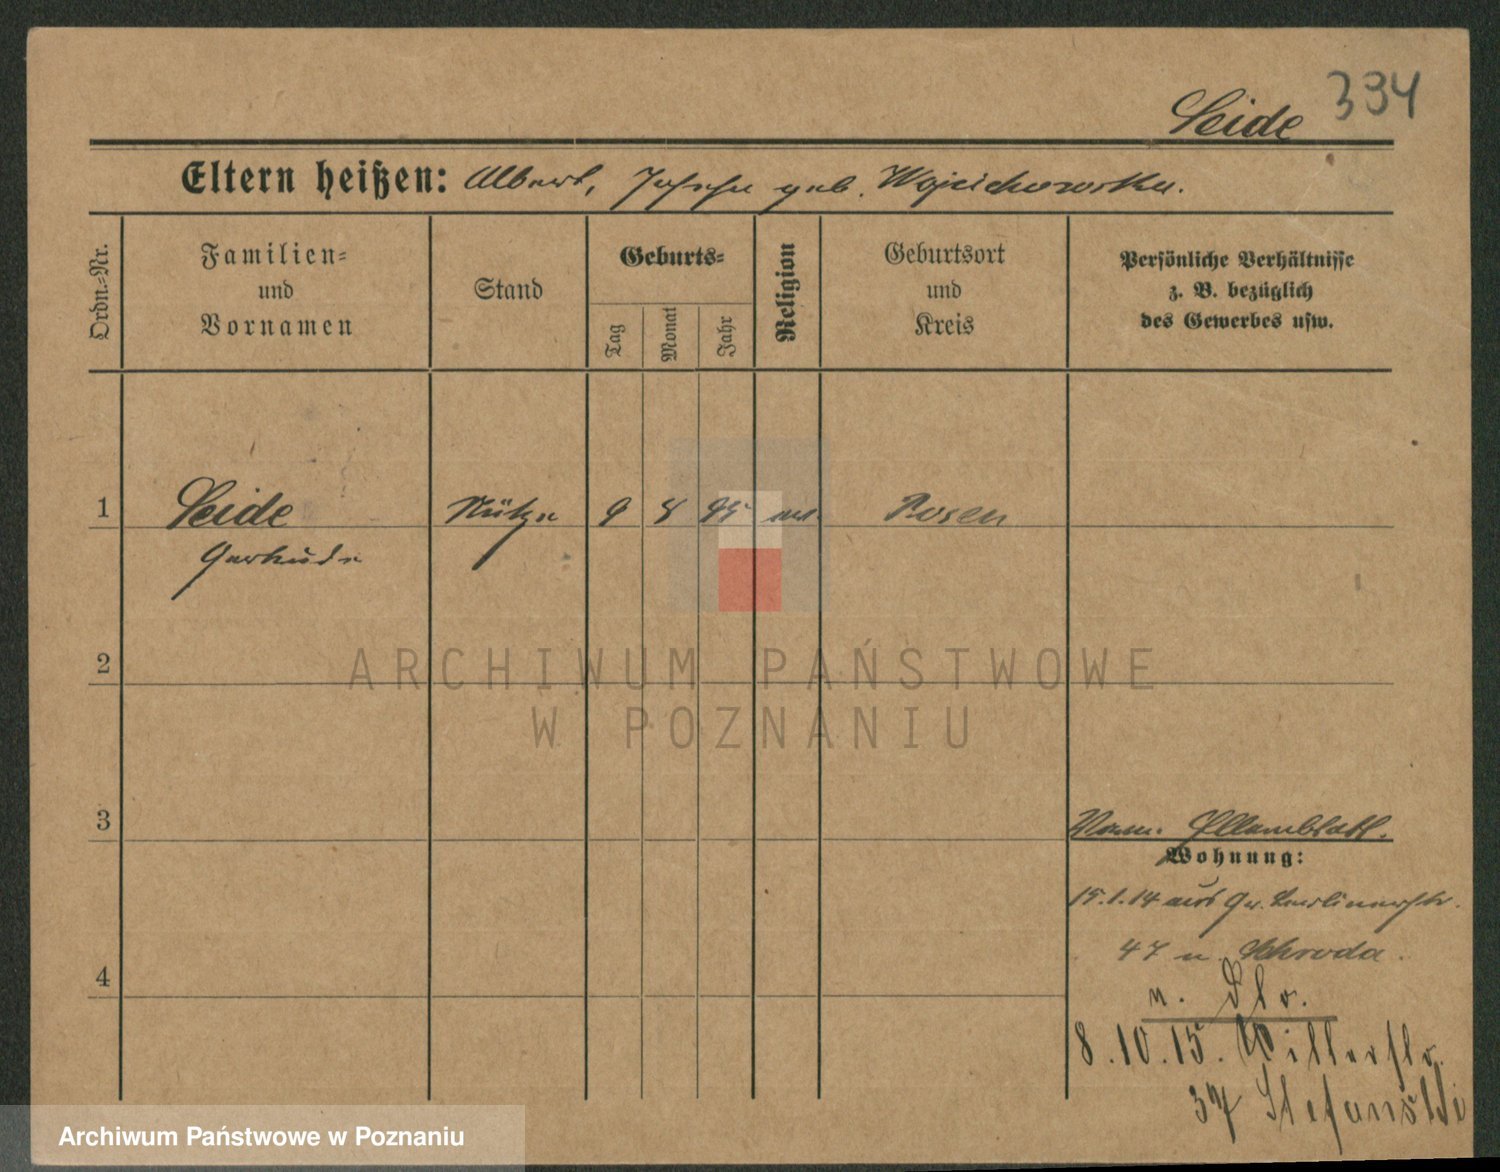 334
Seide
Eltern heißen: Albert, Josefa geb. Wojciechowska.
Ordn.-Nr.
Familien-
und
Vornamen
Stand
Geburts-
Tag
Monat
Jahr
Religion
Geburtsort
und
Kreis
Persönliche Verhältnisse
z. B. bezüglich
des Gewerbes usw.
1 Seide Stütze 9 8 95 Posen
Gertrude
2
ARCHIWUM PAŃSTWOWE
W POZNANIU
3
Wohnung:
15.1.14 aus Gr. Berlinerstr.
47 n. Schroda.
4
8.10.15. Ritterstr.
37 Stefanski
Archiwum Państwowe w Poznaniu